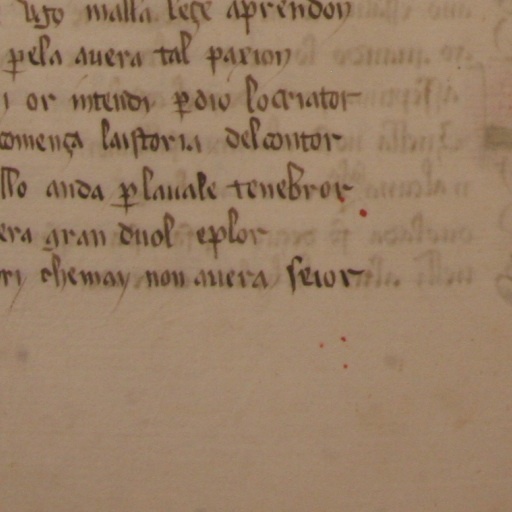 Ugo malla leçe aprendoy
ꝑela auera tal paxion
i or intendi ꝑ dio lo criator
comença laistoria del contor
llo anda ꝑ lauale tenebror
era gran duol e plor
ri che may non auera seior